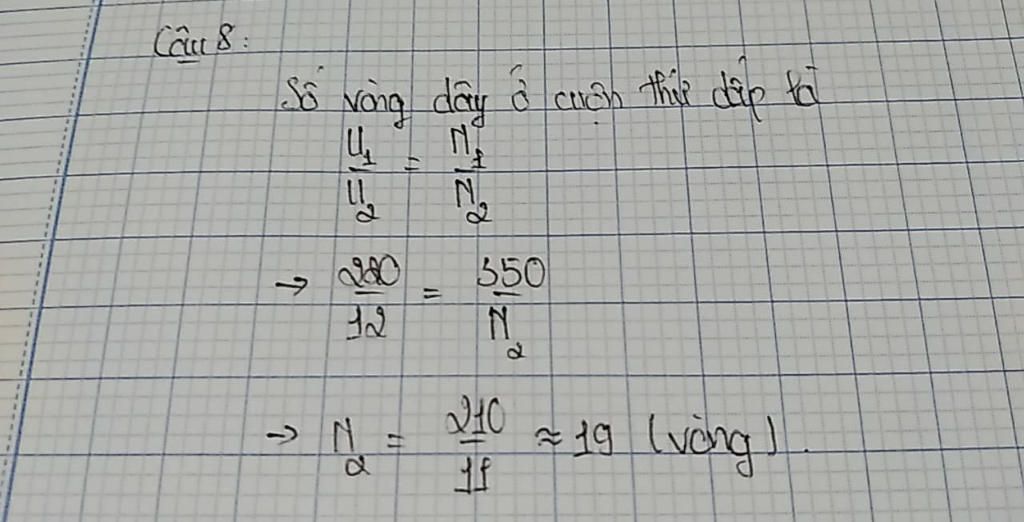 Câu 8:
Số vòng dây ở cuộn thứ cấp là
U₁/U₂ = N₁/N₂
→ 220/12 = 350/N₂
→ N₂ = 210/11 ≈ 19 (vòng).